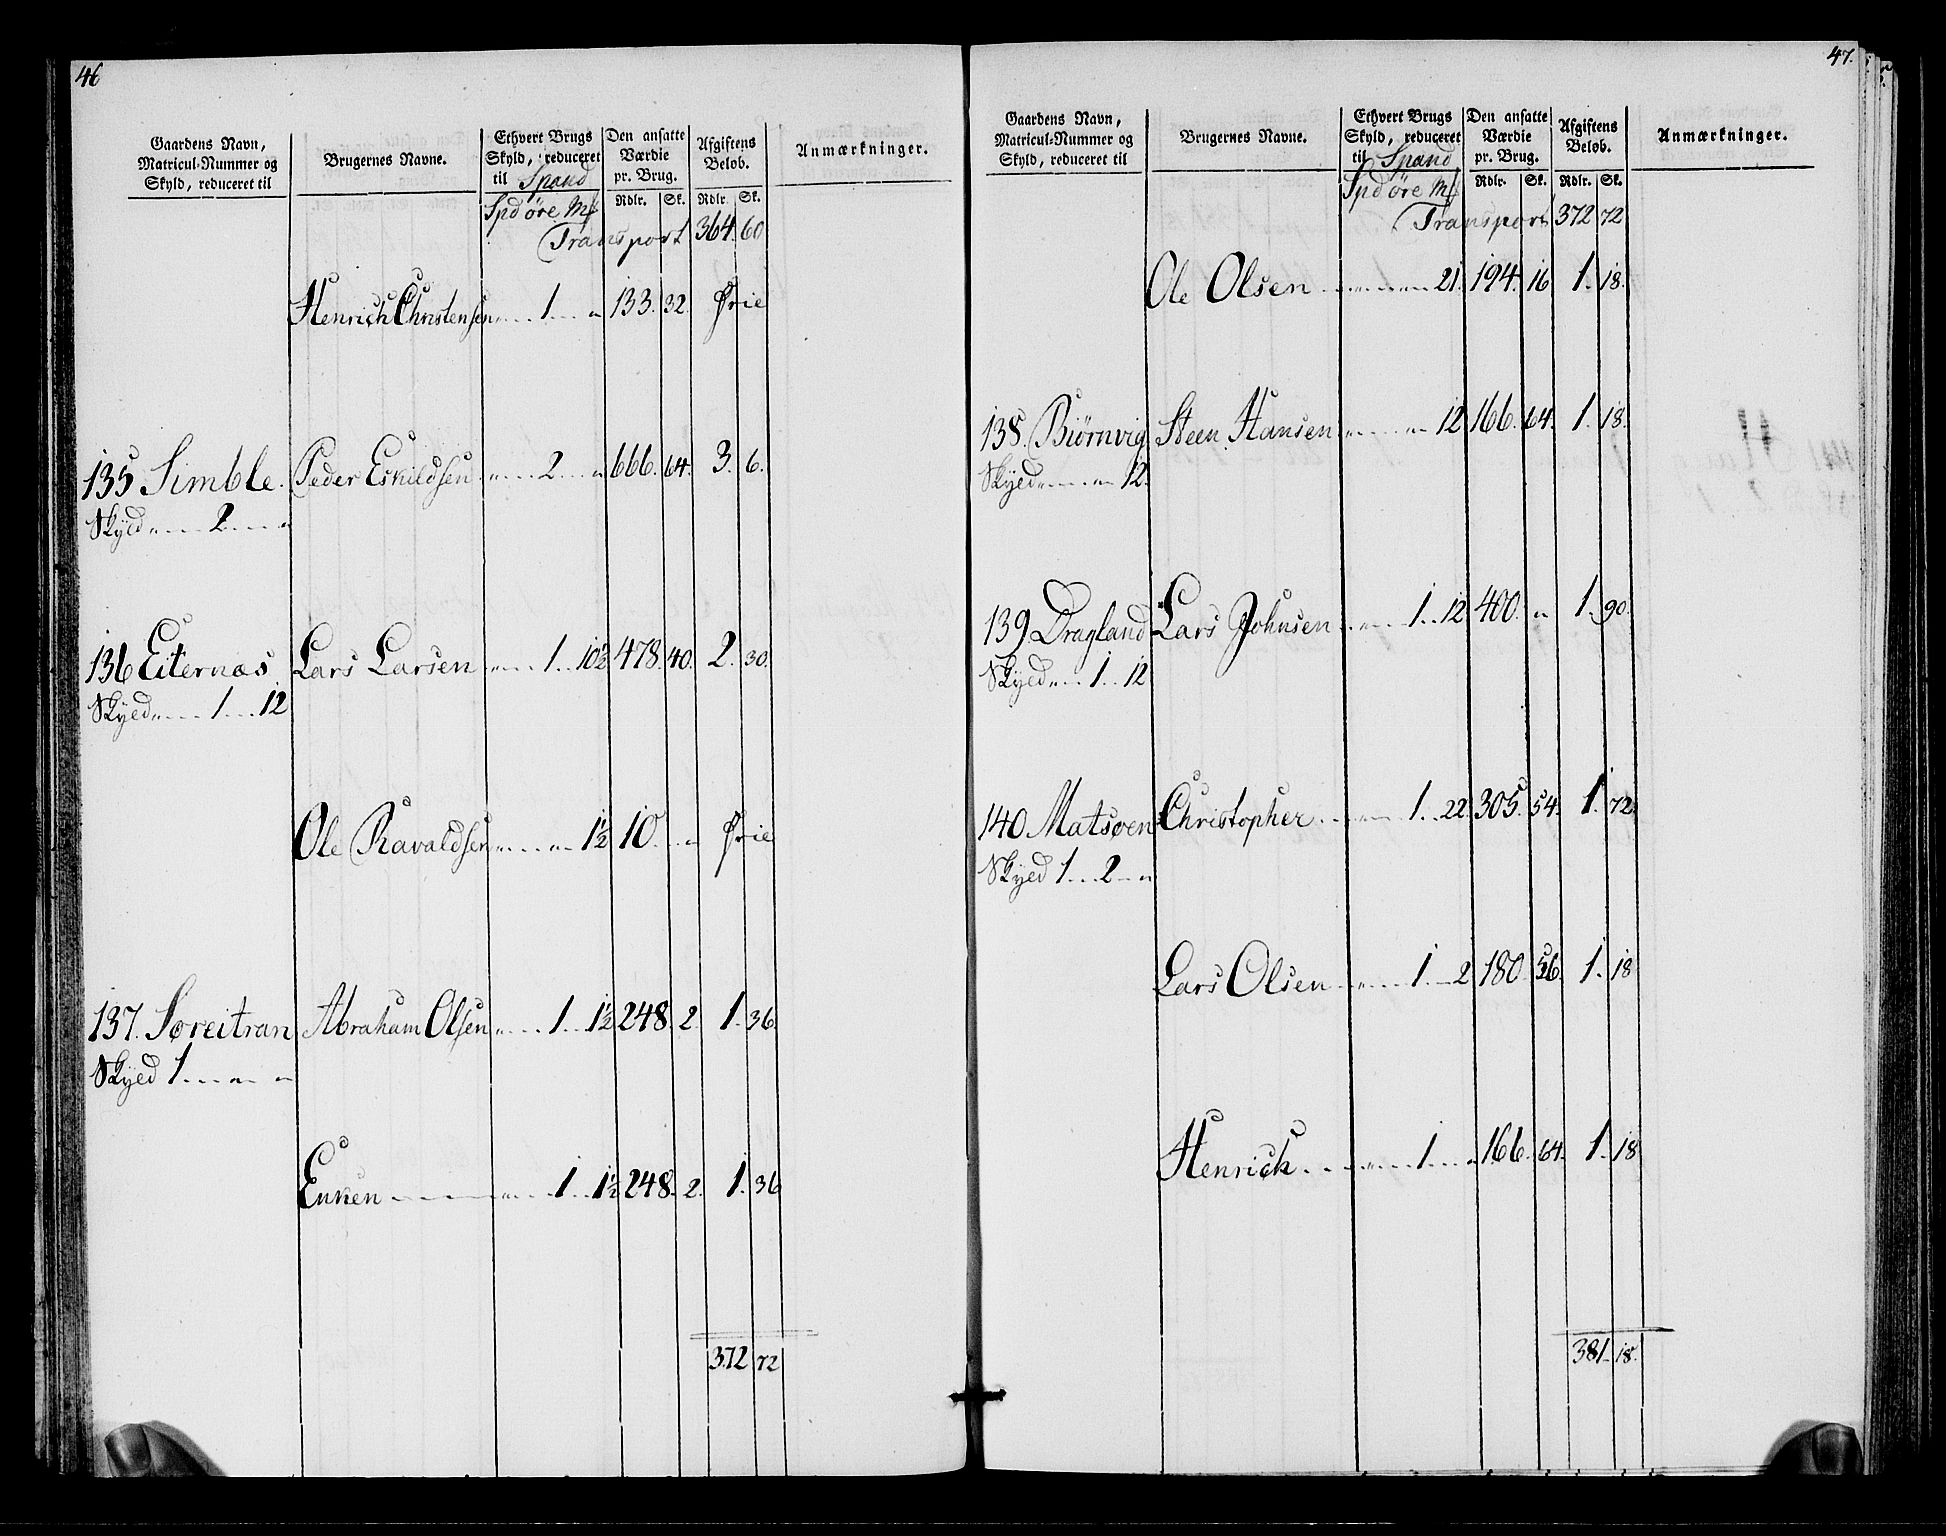 46
Gaardens Navn, Matricul-Nummer og Skyld, reduceret til
Brugernes Navne.
Ethvert Brugs Skyld, reduceret til Spand
Den ansatte Værdie pr. Brug.
Afgiftens Beløb.
Anmærkninger.
Spd øre Mk Rdlr. Sk. Rdlr. Sk.
Transport 364. 60
Henrich Christensen 1 " 133. 32. Frie
135 Simble. Peder Eskildsen " 2 " 666. 64. 3. 6.
Skyld " 2 "
136 Eiternæs Lars Larsen " 1 10½ 478. 40. 2. 30.
Skyld " 1 12
Ole Ravaldsen " " 1½ 10. " Frie
137. Soreitran Abraham Olsen " 1 1½ 248. 2. 1. 36.
Skyld 1 " "
Enken " 1 1½ 248. 2. 1. 36
372 72
47.
Gaardens Navn, Matricul-Nummer og Skyld, reduceret til
Brugernes Navne.
Ethvert Brugs Skyld, reduceret til Spand
Den ansatte Værdie pr. Brug.
Afgiftens Beløb.
Anmærkninger.
Spd øre Mk Rdlr. Sk. Rdlr. Sk.
Transport 372 72
Ole Olsen " " 21. 194. 16 1. 18.
138. Biørnvig Steen Hansen " " 12 166. 64. 1. 18.
Skyld " " 12.
139 Dragland Lars Johnsen " 1 12 400. " 1. 90.
Skyld " 1 12
140 Matsøen Christopher " 1 22. 305. 54. 1. 72.
Skyld 1 2 "
Lars Olsen " 1 2 180. 56. 1. 18
Henrich " 1 " 166. 64. 1. 18
381. 18.